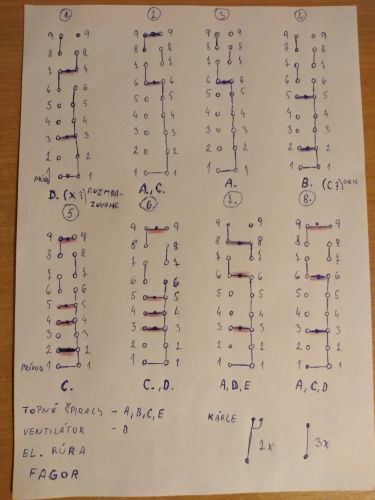 1. 2. 3. 4.
9 9 9 9 9 9 9 9
8 8 8 8 8 8 8 8
7 7 7 7 7 7 7 7
6 6 6 6 6 6 6 6
5 5 5 5 5 5 5 5
4 4 4 4 4 4 4 4
3 3 3 3 3 3 3 3
2 2 2 2 2 2 2 2
1 1 1 1 1 1 1 1
D. (X?) A., C. A. B. (C?) GRIL
5 6. 7. 8.
9 9 9 9 9 9 9 9
8 8 8 8 8 8 8 8
7 7 7 7 7 7 7 7
6 6 6 6 6 6 6 6
5 5 5 5 5 5 5 5
4 4 4 4 4 4 4 4
3 3 3 3 3 3 3 3
2 2 2 2 2 2 2 2
PŘÍVOD 1 1 1 1 1 1 1 1
C. C., D. A, D, E A, C, D
TOPNÉ ŠPIRALY - A, B, C, E
VENTILÁTOR - D
EL. RÚRA
FAGOR
KÁBLE
1x 3x